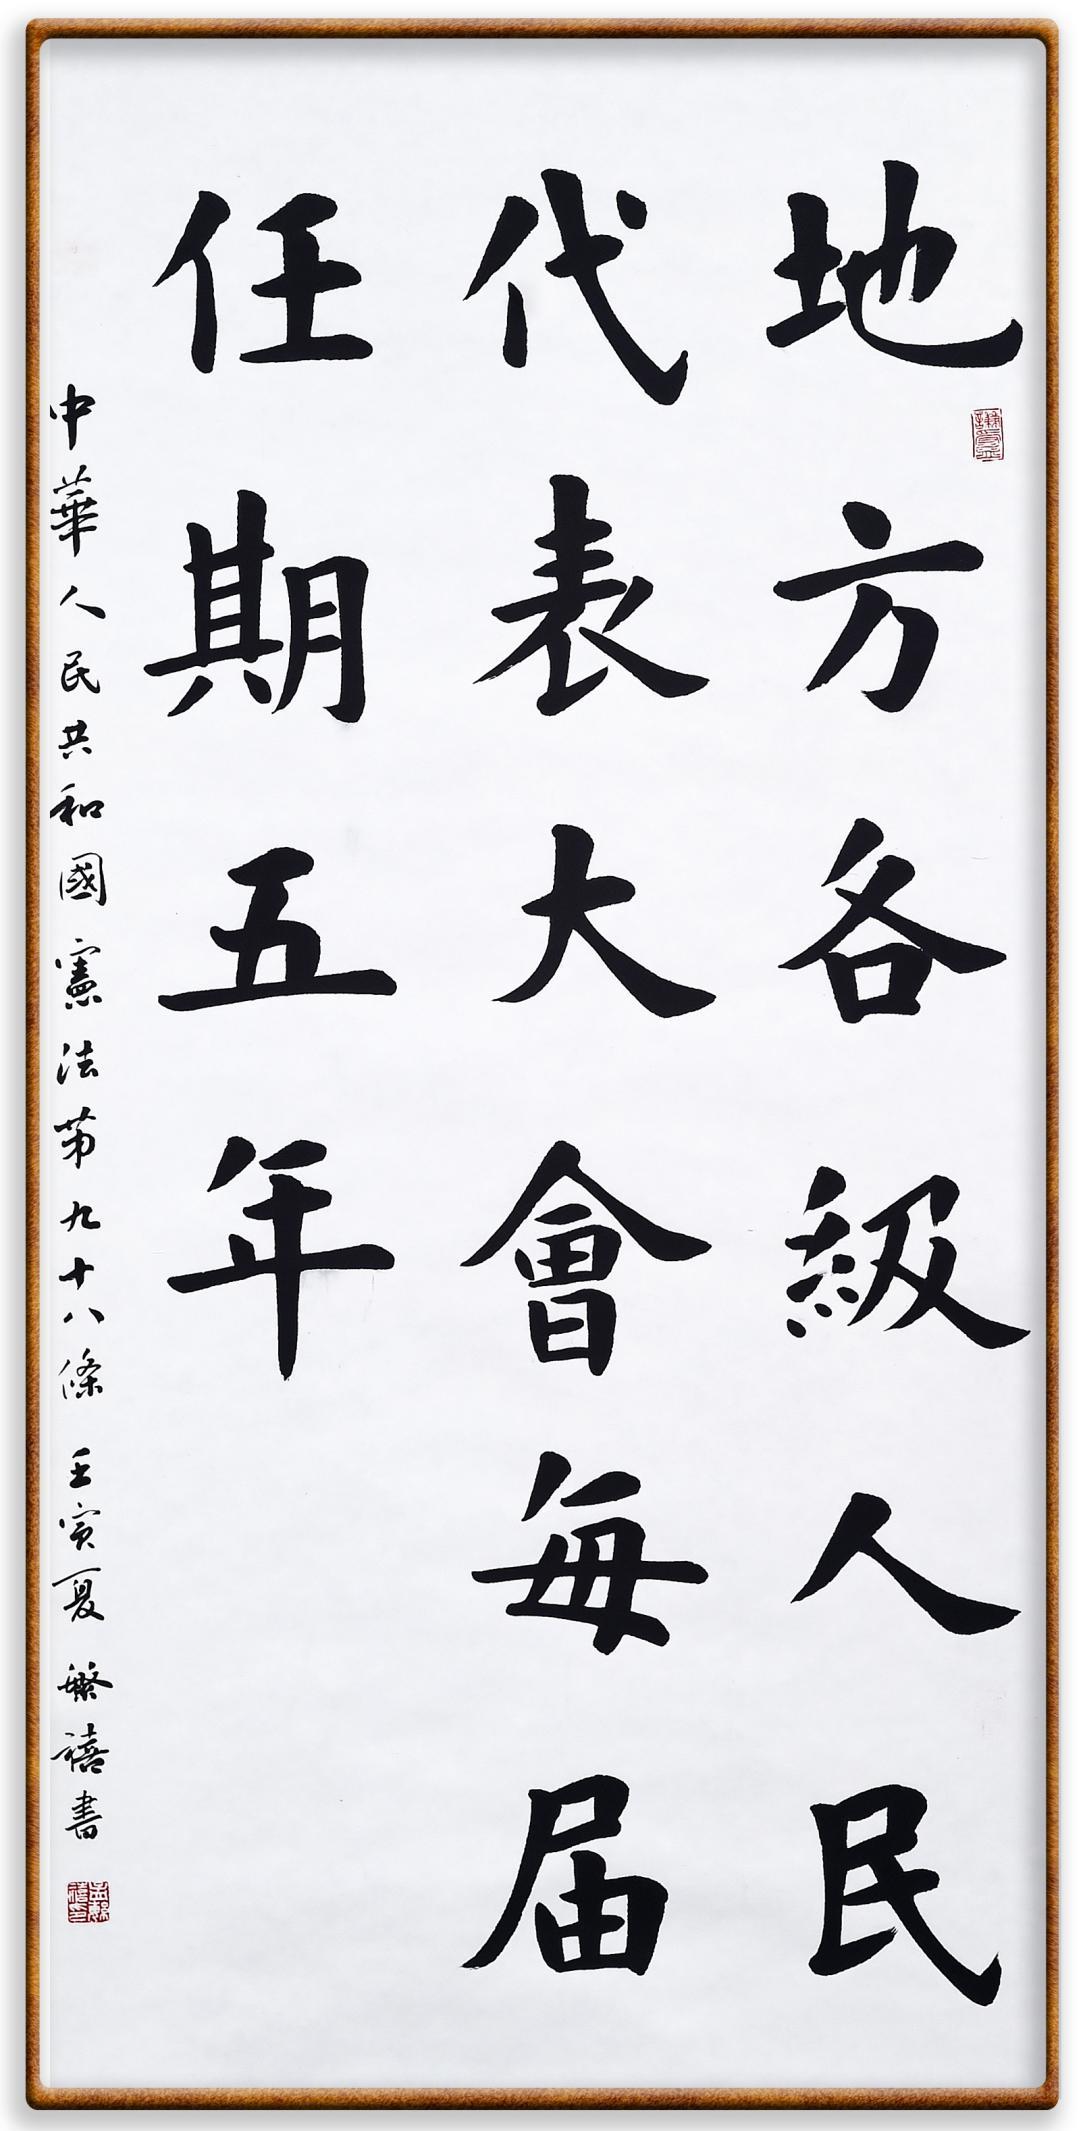 地方各級人民
代表大會每届
任期五年
中華人民共和國憲法第九十八條 壬寅夏 繁禧書
謙受益